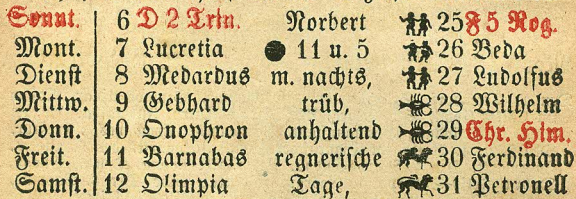 Sonnt. 6 D 2 Trin. Norbert 25 F 5 Rog.
Mont. 7 Lucretia 11 u. 5 26 Beda
Dienst 8 Medardus m. nachts, 27 Ludolfus
Mittw. 9 Gebhard trüb, 28 Wilhelm
Donn. 10 Onophron anhaltend 29 Chr. Him.
Freit. 11 Barnabas regnerische 30 Ferdinand
Samst. 12 Olimpia Tage, 31 Petronell